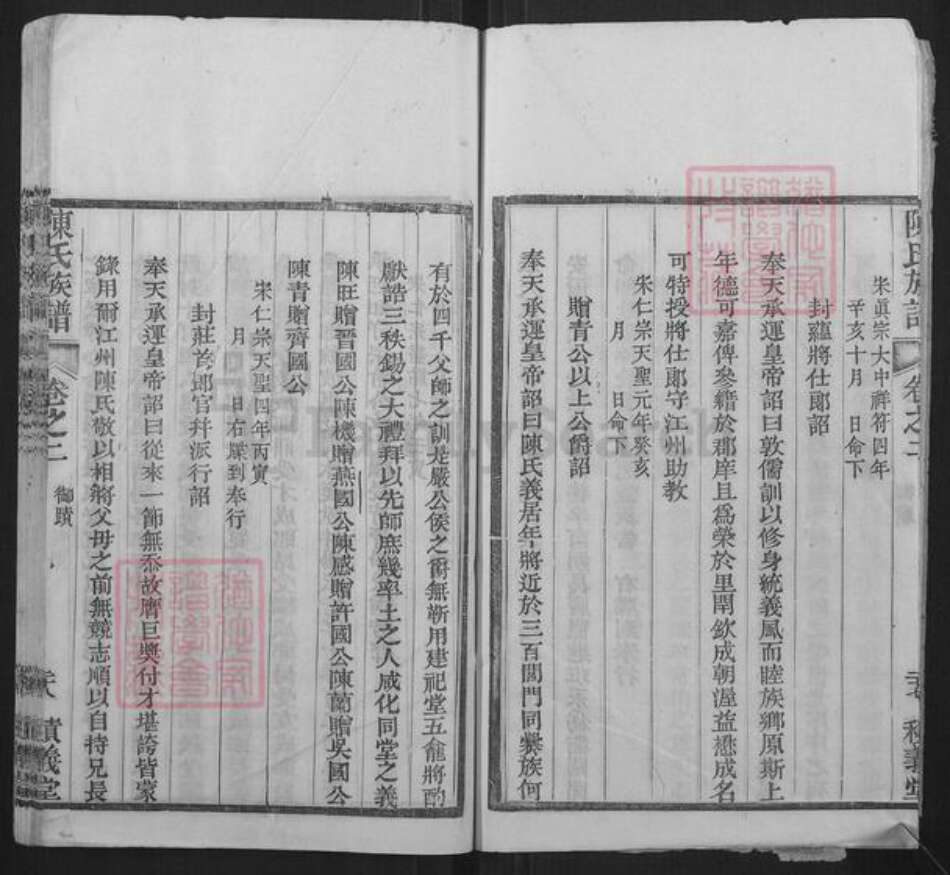 陳氏族譜
卷之二
積義堂
宋眞宗大中祥符四年
辛亥十月 日命下
封蘊將仕郞詔
奉天承運皇帝詔曰敦儒訓以修身統義風而睦族鄉原斯上
年德可嘉俾參籍於郡庠且爲榮於里閈欽成朝渥益懋成名
可特授將仕郞守江州助教
宋仁宗天聖元年癸亥
月 日命下
贈青公以上公爵詔
奉天承運皇帝詔曰陳氏義居年將近於三百闔門同爨族何
有於四千父師之訓是嚴公侯之爵無靳用建祀堂五龕將酌
獻誥三秩錫之大禮拜以先師庶幾率土之人咸化同堂之義
陳旺贈晉國公陳機贈燕國公陳感贈許國公陳蘭贈吳國公
陳青贈齊國公
宋仁宗天聖四年丙寅
月 日右牒到奉行
封莊首郞官幷派行詔
奉天承運皇帝詔曰從來一節無忝故膺巨典付才堪誇皆蒙
錄用爾江州陳氏敬以相將父母之前無競志順以自持兄長
陳氏族譜
卷之二
御蹟
六
積義堂